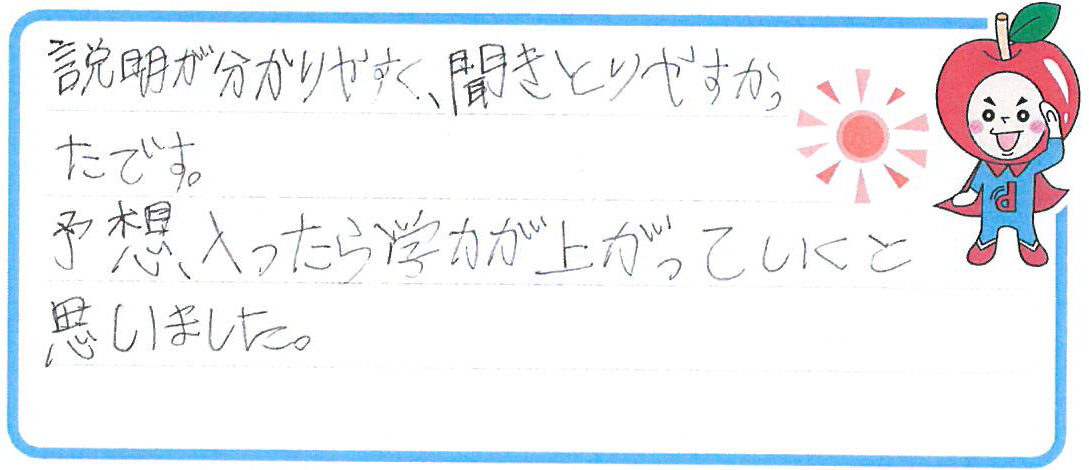 説明が分かりやすく、聞きとりやすかっ
たです。
予想、入ったら学力が上がっていくと
思いました。